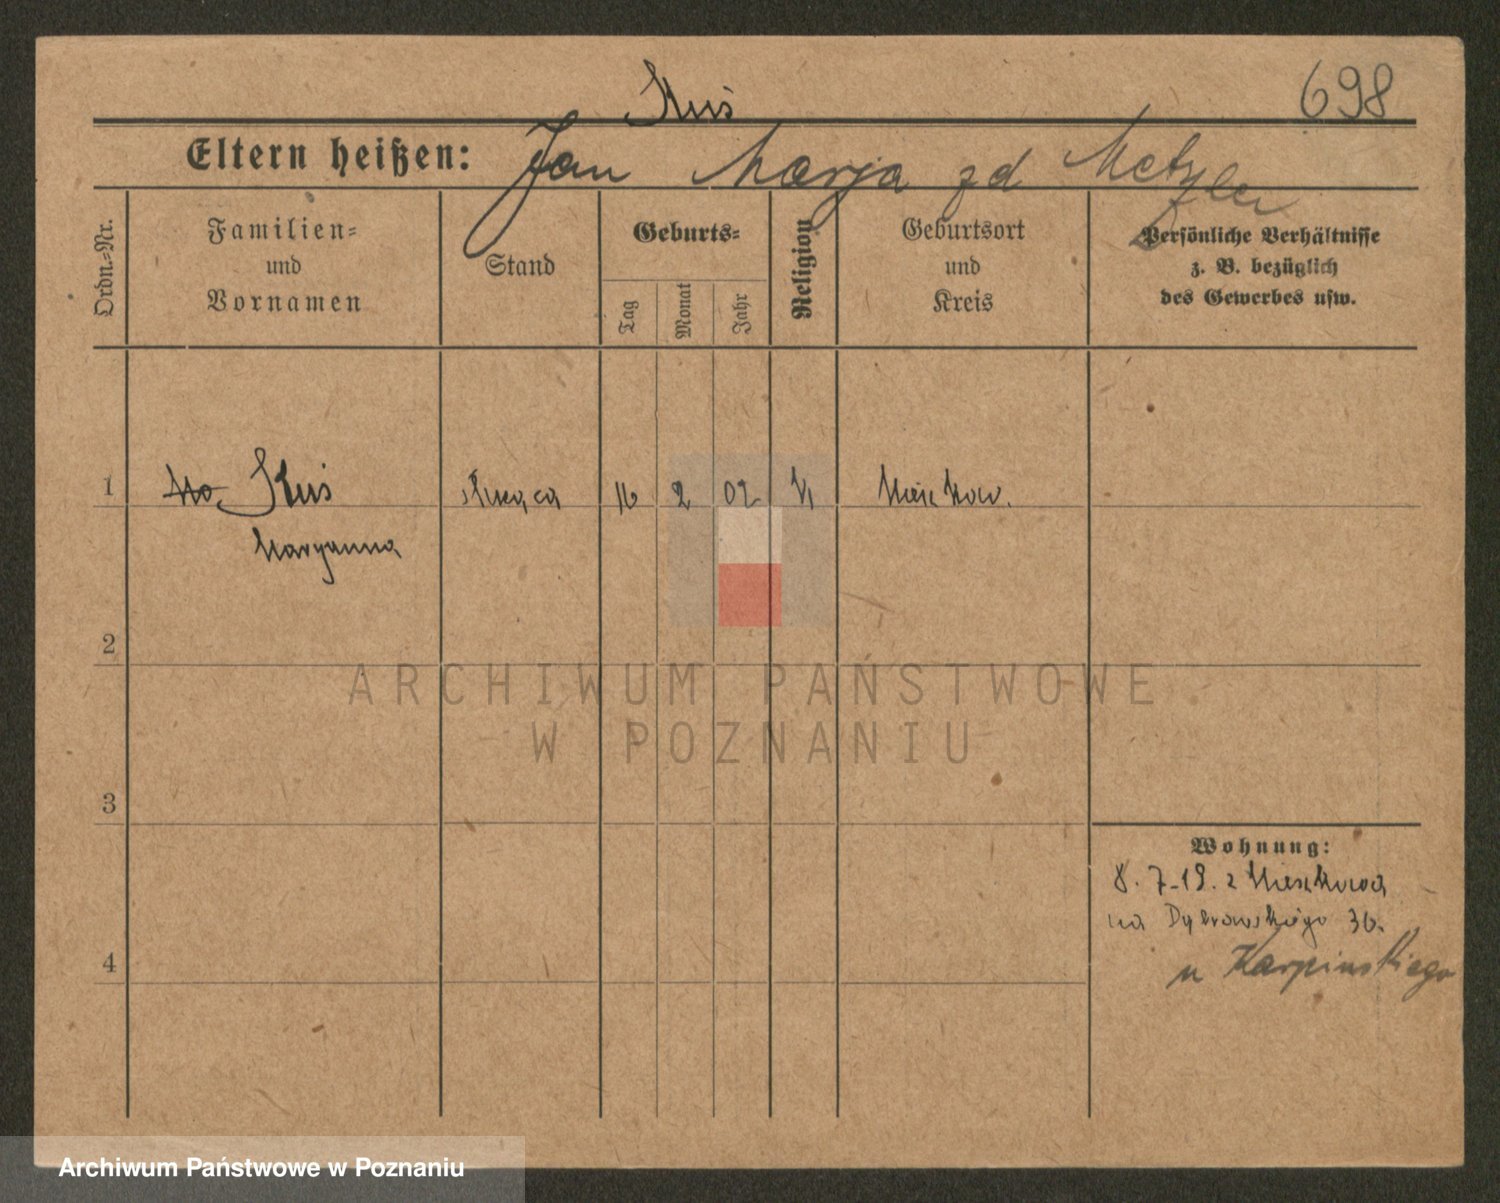 698
Kuś
Eltern heißen: Jan Marja zd Metzler
Ordn.-Nr.
Familien-
und
Vornamen
Stand
Geburts-
Tag
Monat
Jahr
Religion
Geburtsort
und
Kreis
Persönliche Verhältnisse
z. B. bezüglich
des Gewerbes usw.
1 Kuś służąca 16 2 02 Mieszków.
Maryanna
2
ARCHIWUM PAŃSTWOWE
W POZNANIU
3
Wohnung:
8. 7-19. z Mieszkowa
na Dąbrowskiego 36.
u Karpińskiego
4
Archiwum Państwowe w Poznaniu